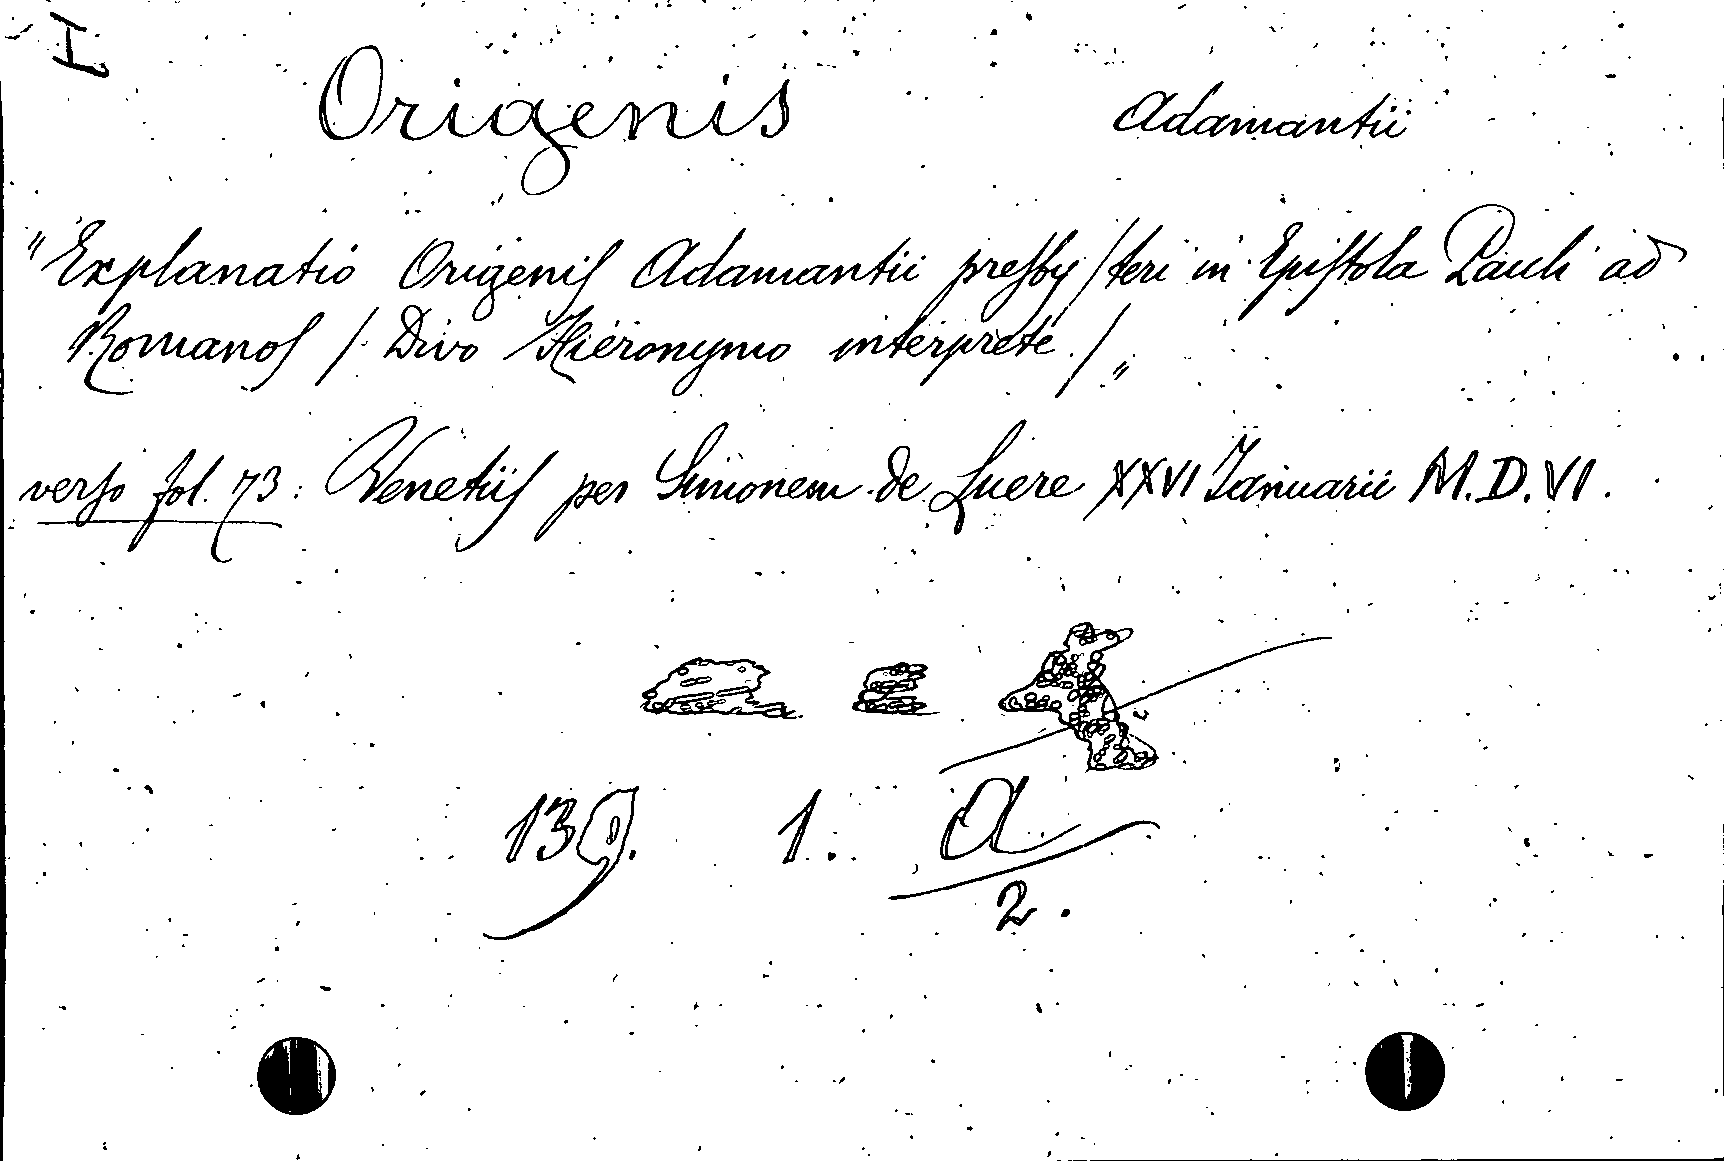 I
Origenis Adamantii
"Explanatio Origeniſ Adamantii preſby/teri in Epiſtola Pauli ad
Romanoſ / Divo Hieronymo interprete./"
verſo fol. 73: Venetiiſ per Simonem de Luere XXVI Januarii M.D.VI.
139. 1. a
2.